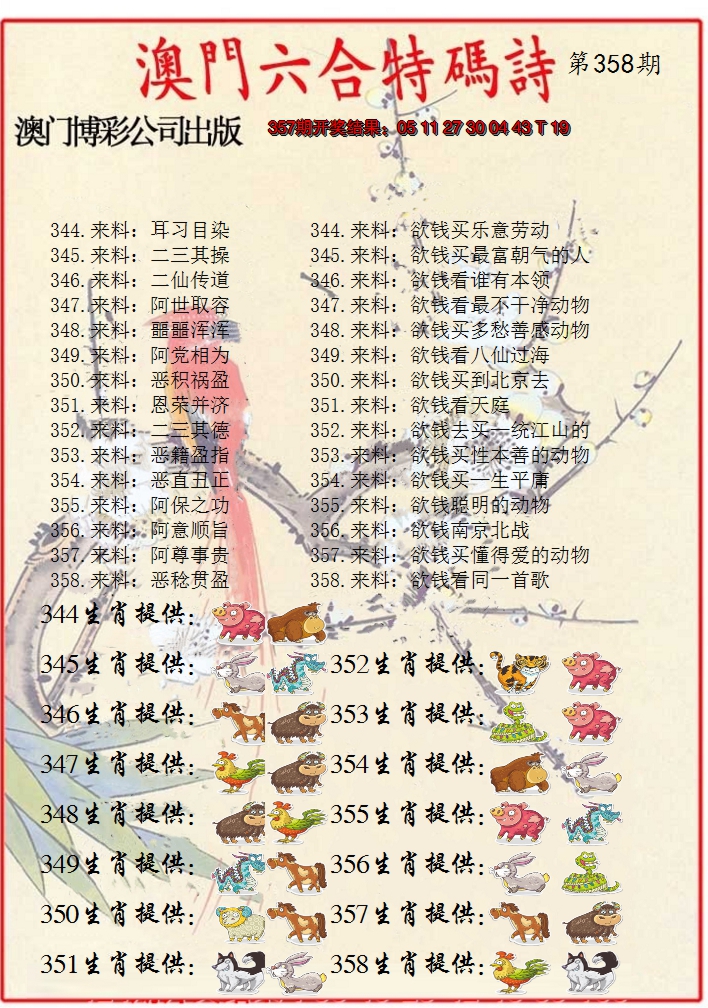 澳門六合特碼詩 第358期
澳门博彩公司出版 357期开奖结果：05 11 27 30 04 43 T 19
344.来料：耳习目染 344.来料：欲钱买乐意劳动
345.来料：二三其操 345.来料：欲钱买最富朝气的人
346.来料：二仙传道 346.来料：欲钱看谁有本领
347.来料：阿世取容 347.来料：欲钱看最不干净动物
348.来料：噩噩浑浑 348.来料：欲钱买多愁善感动物
349.来料：阿党相为 349.来料：欲钱看八仙过海
350.来料：恶积祸盈 350.来料：欲钱买到北京去
351.来料：恩荣并济 351.来料：欲钱看天庭
352.来料：二三其德 352.来料：欲钱去买一统江山的
353.来料：恶籍盈指 353.来料：欲钱买性本善的动物
354.来料：恶直丑正 354.来料：欲钱买一生平庸
355.来料：阿保之功 355.来料：欲钱聪明的动物
356.来料：阿意顺旨 356.来料：欲钱南京北战
357.来料：阿尊事贵 357.来料：欲钱买懂得爱的动物
358.来料：恶稔贯盈 358.来料：欲钱看同一首歌
344生肖提供：
345生肖提供： 352生肖提供：
346生肖提供： 353生肖提供：
347生肖提供： 354生肖提供：
348生肖提供： 355生肖提供：
349生肖提供： 356生肖提供：
350生肖提供： 357生肖提供：
351生肖提供： 358生肖提供：